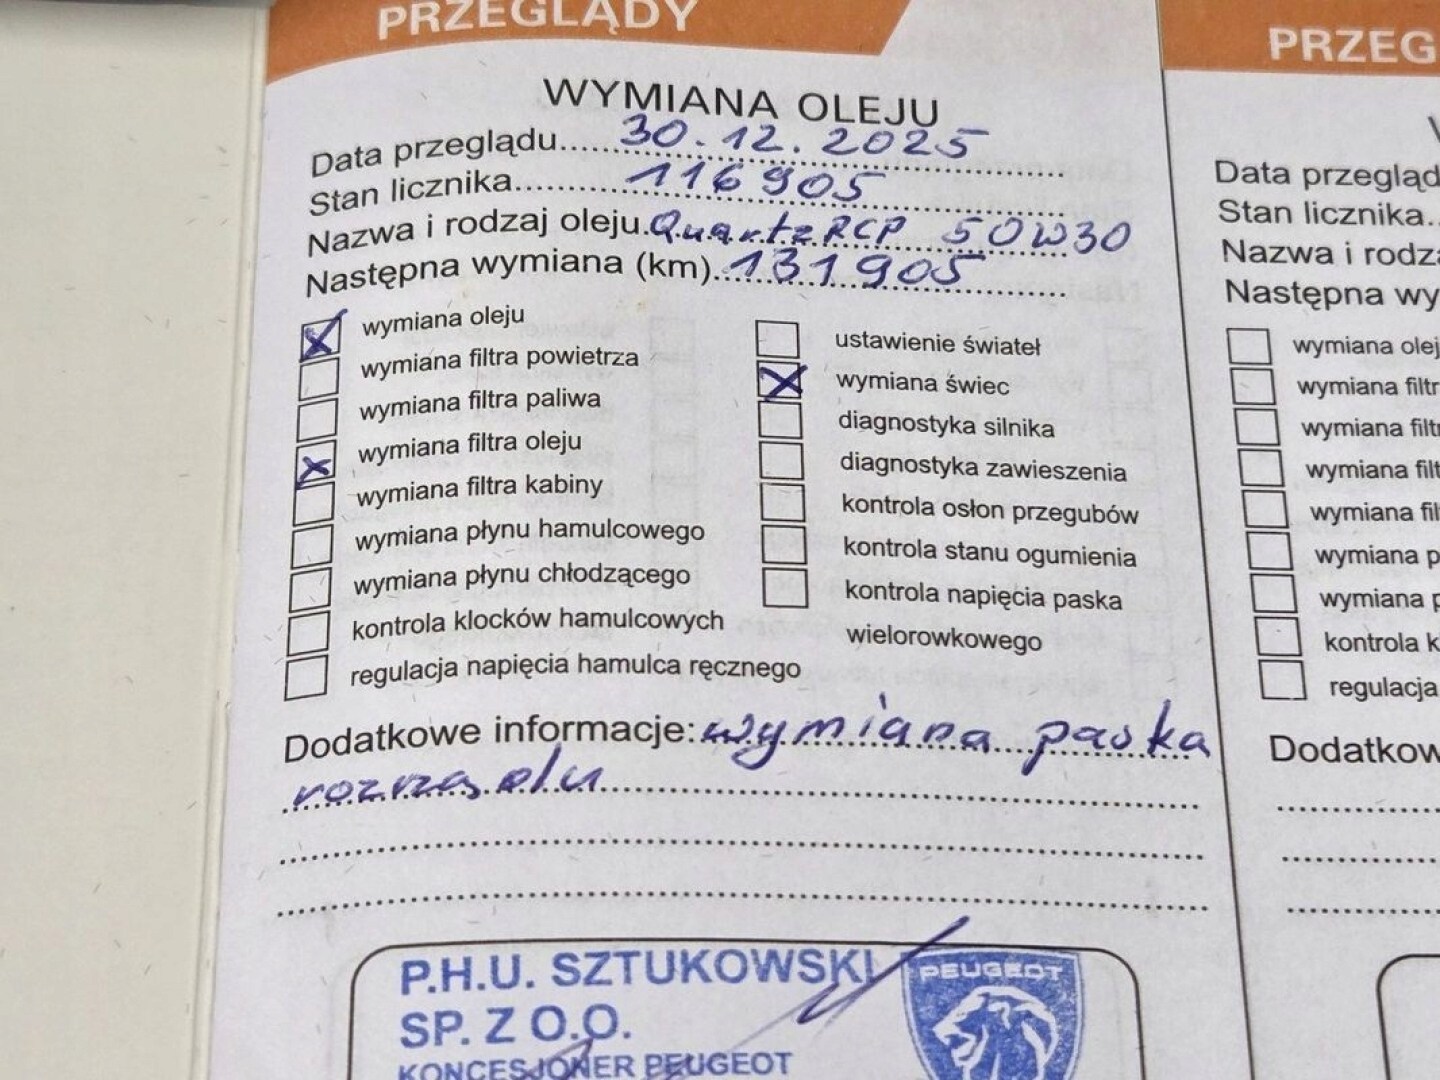 PRZEGLĄDY
WYMIANA OLEJU
Data przeglądu 30.12.2025
Stan licznika 116905
Nazwa i rodzaj oleju Quartz RCP 50W30
Następna wymiana (km) 131905
wymiana oleju
wymiana filtra powietrza
wymiana filtra paliwa
wymiana filtra oleju
wymiana filtra kabiny
wymiana płynu hamulcowego
wymiana płynu chłodzącego
kontrola klocków hamulcowych
regulacja napięcia hamulca ręcznego
ustawienie świateł
wymiana świec
diagnostyka silnika
diagnostyka zawieszenia
kontrola osłon przegubów
kontrola stanu ogumienia
kontrola napięcia paska
wielorowkowego
Dodatkowe informacje: wymiana paska
rozrządu
P.H.U. SZTUKOWSKI
SP. Z O.O.
KONCESJONER PEUGEOT
PEUGEOT
PRZEG
Data przegląd
Stan licznika
Nazwa i rodz
Następna wy
wymiana olej
wymiana filtr
wymiana filt
wymiana filt
wymiana fil
wymiana p
wymiana p
kontrola k
regulacja
Dodatkow